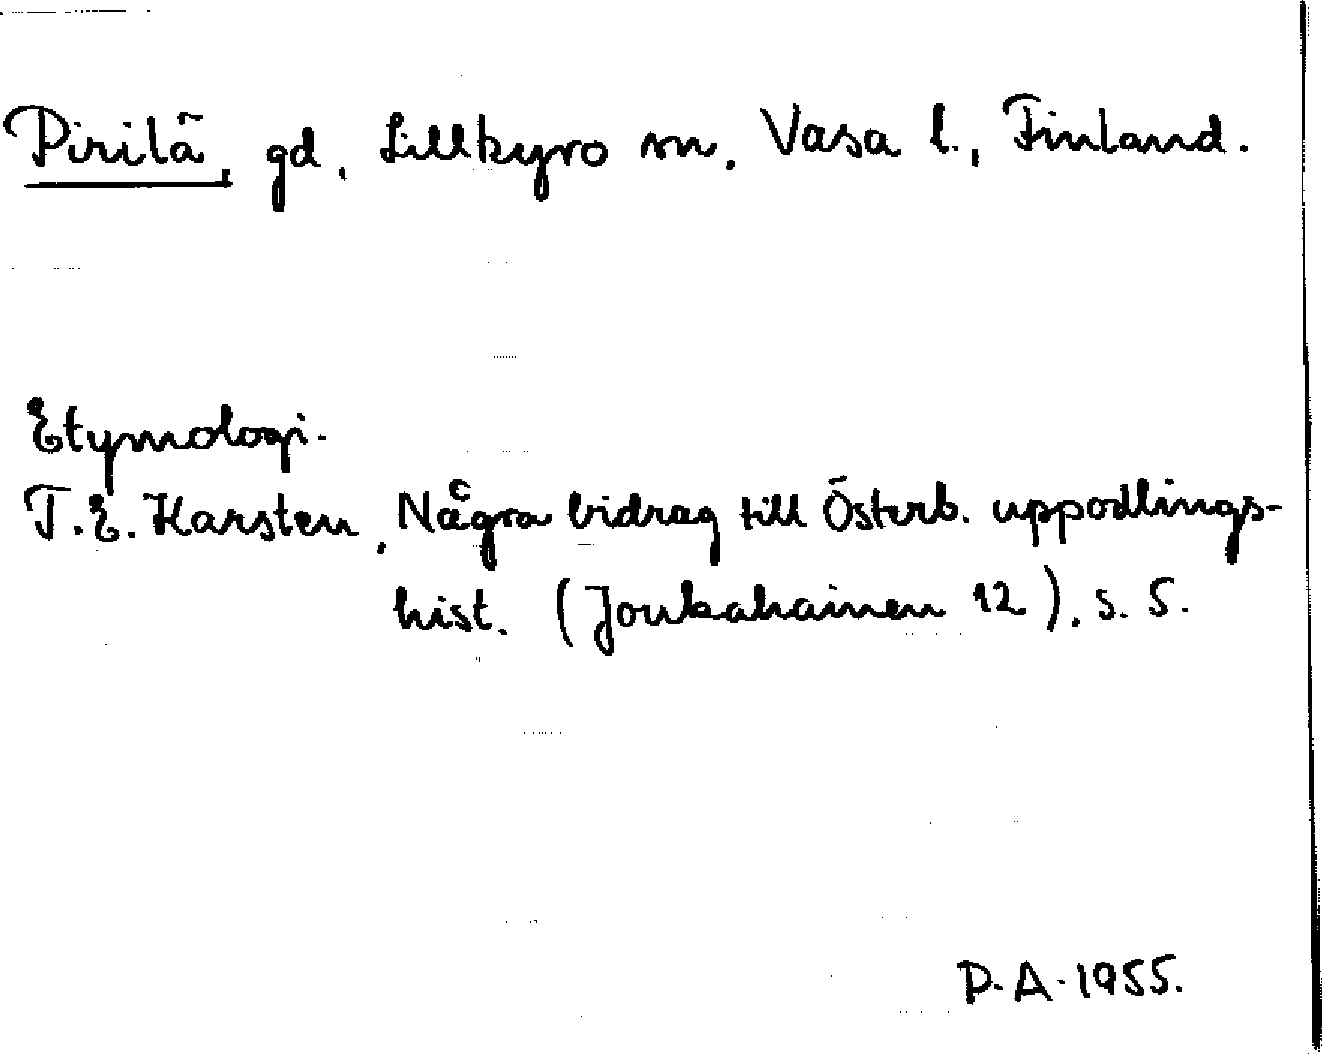 Pirilä, gd, Lillkyro sn, Vasa l., Finland.
Etymologi.
T.E. Karsten, Några bidrag till Österb. uppodlings-
hist. (Joukahainen 12), s. 5.
P.A. 1955.